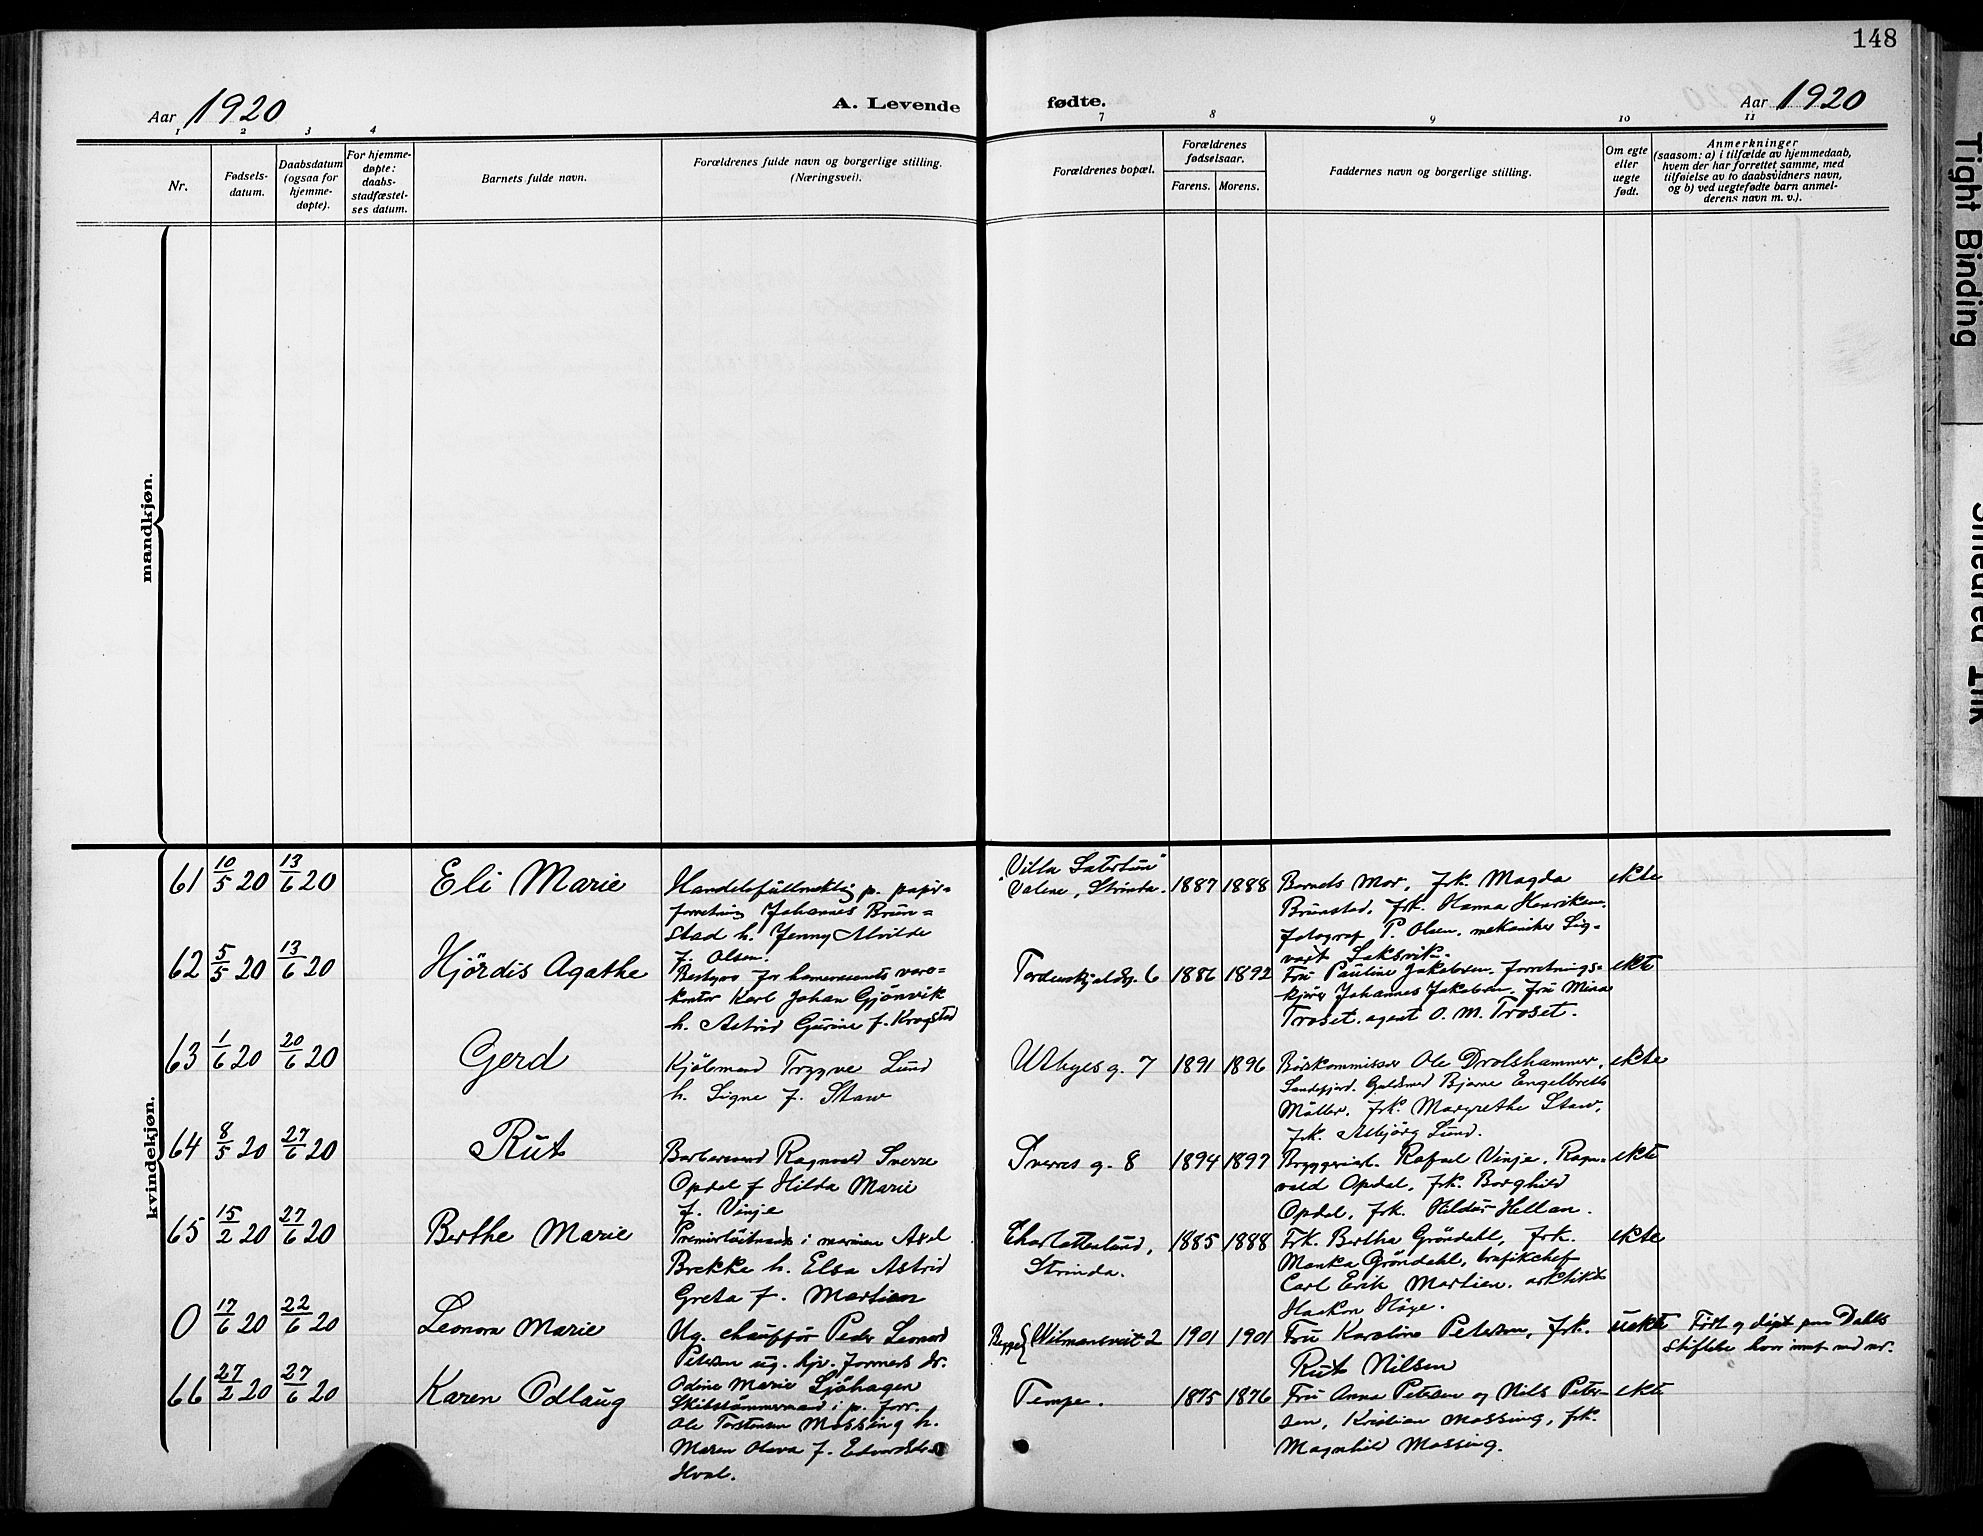 148
Aar 1920 A. Levende fødte. Aar 1920
1 2 3 4 7 8 9 10 11
Nr.
Fødsels-
datum.
Daabsdatum
(ogsaa for
hjemme-
døpte).
For hjemme-
døpte:
daabs-
stadfæstel-
ses datum.
Barnets fulde navn.
Forældrenes fulde navn og borgerlige stilling.
(Næringsvei).
Forældrenes bopæl.
Forældrenes
fødselsaar.
Farens. Morens.
Faddernes navn og borgerlige stilling.
Om egte
eller
uegte
født.
Anmerkninger
(saasom: a) i tilfælde av hjemmedaab,
hvem der har forrettet samme, med
tilføielse av to daabsvidners navn,
og b) ved uegtefødte barn anmel-
derens navn m. v.).
mandkjøn.
kvindekjøn.
61 10/5 20 13/6 20 Eli Marie
Handelsfullmektig p. papir-
forretning Johannes Brun-
stad h. Jenny Alvilde
f. Olsen.
"Villa
Valene, Strinda. 1887 1888
Barnets Mor, frk. Magda
Brunstad, frk. Hanna Henriksen,
fotograf P. Olsen, mekaniker Sig-
vart Saksvik.
ekte
62 5/5 20 13/6 20 Hjördis Agathe
Bestyrer for
kontor Karl Johan Gjönvik
h. Astrid Gurine f. Krogstad
Tordenskjoldsg. 6 1886 1892
Fru Pauline Jakobsen, forretnings-
kjörer Johannes Jakobsen, Fru Mina
Troset, agent O. M. Troset.
ekte
63 1/6 20 20/6 20 Gerd
Kjöbmand Trygve Lund
h. Signe f. Staw
Ulbyes g. 7 1891 1896
Börskommissær Ole Drolshammer,
Sandefjord. Guldsmed Bjarne Engelbrett
Möller, frk. Margrethe Staw,
frk. Asbjörg Lund.
ekte
64 8/5 20 27/6 20 Rut
Barbersvend Ragnvald Sverre
Opdal f Hilda Marie
f. Vinje
Sverres g. 8 1894 1897
Bryggeriarb. Rafael Vinje, Ragn-
vald Opdal, frk. Borghild
Opdal, frk. Hildur Hellan.
ekte
65 15/2 20 27/6 20 Berthe Marie
Premierlöitnant i marinen Axel
Brekke h. Elsa Astrid
Greta f. Martien
Charlottenlund,
Strinda. 1885 1888
Frk. Bertha Gröndahl, frk.
Manka Gröndahl, trafikchef
Carl Erik Martien, arkitekt
Haakon Höye.
ekte
0 17/6 20 22/6 20 Leonora Marie
Ug. chauffør Peder Leonard
Petersen ug. hjv. formers dr.
Odine Marie Sjöhagen
Begge Wilmansveit 2 1901 1901
Fru Karoline Petersen, frk.
Rut Nilsen
uekte
Födt og döpt paa Dahls
Stiftelse hvor innf med nr.
66 27/2 20 27/6 20 Karen Odlaug
Skibstömmermand i p. forr.
Ole Torstensen Mossing h.
Maren Olava f.
Hval.
Tempe. 1875 1876
Fru Anna Petersen og Nils Peter-
sen, Kristian Mossing, frk.
Magnhild Mossing.
ekte
Tight Binding
Smeared Ink